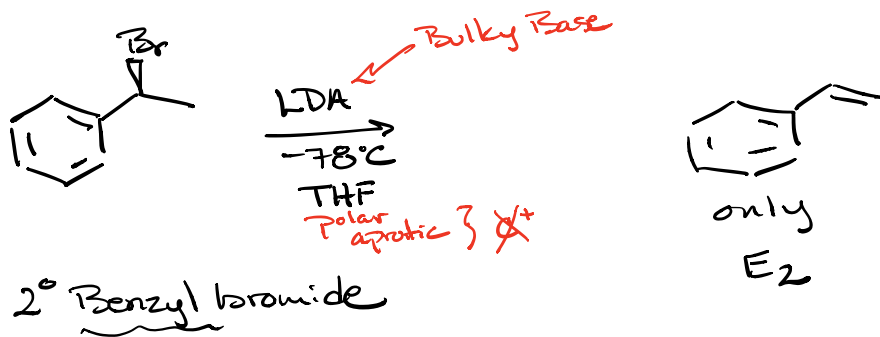 Bulky Base
Br
LDA
-78°C
THF
polar
aprotic } C+
only
E2
2° Benzyl bromide